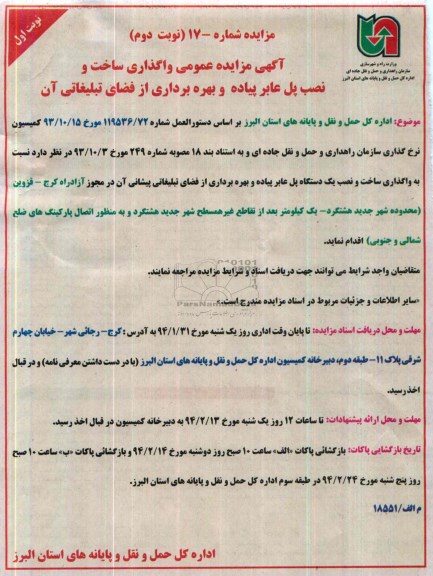 نوبت اول
وزارت راه و شهرسازی
سازمان راهداری و حمل و نقل جاده ای
اداره کل حمل و نقل و پایانه های استان البرز
مزایده شماره -۱۷ (نوبت دوم)
آگهی مزایده عمومی واگذاری ساخت و
نصب پل عابر پیاده و بهره برداری از فضای تبلیغاتی آن
موضوع: اداره کل حمل و نقل و پایانه های استان البرز بر اساس دستورالعمل شماره ۱۱۹۵۳۶/۷۲ مورخ ۹۳/۱۰/۱۵ کمیسیون
نرخ گذاری سازمان راهداری و حمل و نقل جاده ای و به استناد بند ۱۸ مصوبه شماره ۲۴۹ مورخ ۹۳/۱۰/۳ در نظر دارد نسبت
به واگذاری ساخت و نصب یک دستگاه پل عابر پیاده و بهره برداری از فضای تبلیغاتی پیشانی آن در مجوز آزادراه کرج - قزوین
(محدوده شهر جدید هشتگرد- یک کیلومتر بعد از تقاطع غیرهمسطح شهر جدید هشتگرد و به منظور اتصال پارکینگ های ضلع
شمالی و جنوبی) اقدام نماید.
متقاضیان واجد شرایط می توانند جهت دریافت اسناد و شرایط مزایده مراجعه نمایند.
«سایر اطلاعات و جزئیات مربوط در اسناد مزایده مندرج است.»
مهلت و محل دریافت اسناد مزایده: تا پایان وقت اداری روز یک شنبه مورخ ۹۴/۱/۳۱ به آدرس: کرج- رجائی شهر- خیابان چهارم
شرقی پلاک ۱۱- طبقه دوم، دبیرخانه کمیسیون اداره کل حمل و نقل و پایانه های استان البرز (با در دست داشتن معرفی نامه) و در قبال
اخذ رسید.
مهلت و محل ارائه پیشنهادات: تا ساعات ۱۲ روز یک شنبه مورخ ۹۴/۲/۱۳ به دبیرخانه کمیسیون در قبال اخذ رسید.
تاریخ بازگشایی پاکات: بازگشائی پاکات «الف» ساعت ۱۰ صبح روز دوشنبه مورخ ۹۴/۲/۱۴ و بازگشائی پاکات «ب» ساعت ۱۰ صبح
روز پنج شنبه مورخ ۹۴/۲/۲۴ در طبقه سوم اداره کل حمل و نقل و پایانه های استان البرز.
م الف/۱۸۵۵۱
اداره کل حمل و نقل و پایانه های استان البرز